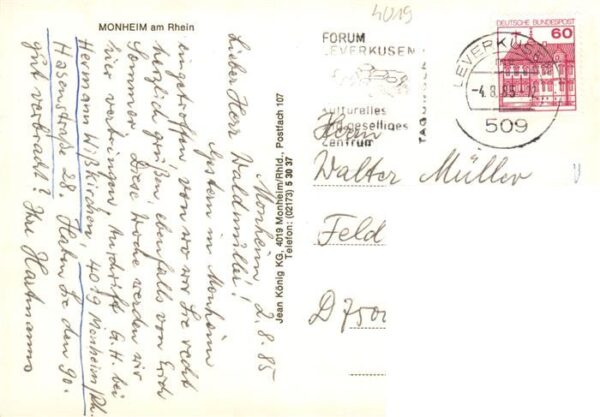 4019
MONHEIM am Rhein
Monheim 2.8.85
Lieber Herr Waldmüller!
Gestern in Monheim
eingetroffen von wo wir Sie recht
herzlich grüßen, ebenfalls von Erich
Sommer. Diese Woche werden wir
hier verbringen, Anschrift G.H. bei
Hermann Wißkirchen, 4019 Monheim/Rh.
Hasenstraße 28. Haben Sie den 90.
gut verbracht? Ihre Hartmanns
Jean König KG, 4019 Monheim/Rhld., Postfach 107
Telefon: (02173) 5 30 37
FORUM
LEVERKUSEN
kulturelles
geselliges
Zentrum
DEUTSCHE BUNDESPOST
60
LEVERKUSEN
-4.8.85-
509
Herrn
Walter Müller
Feld
D 7500